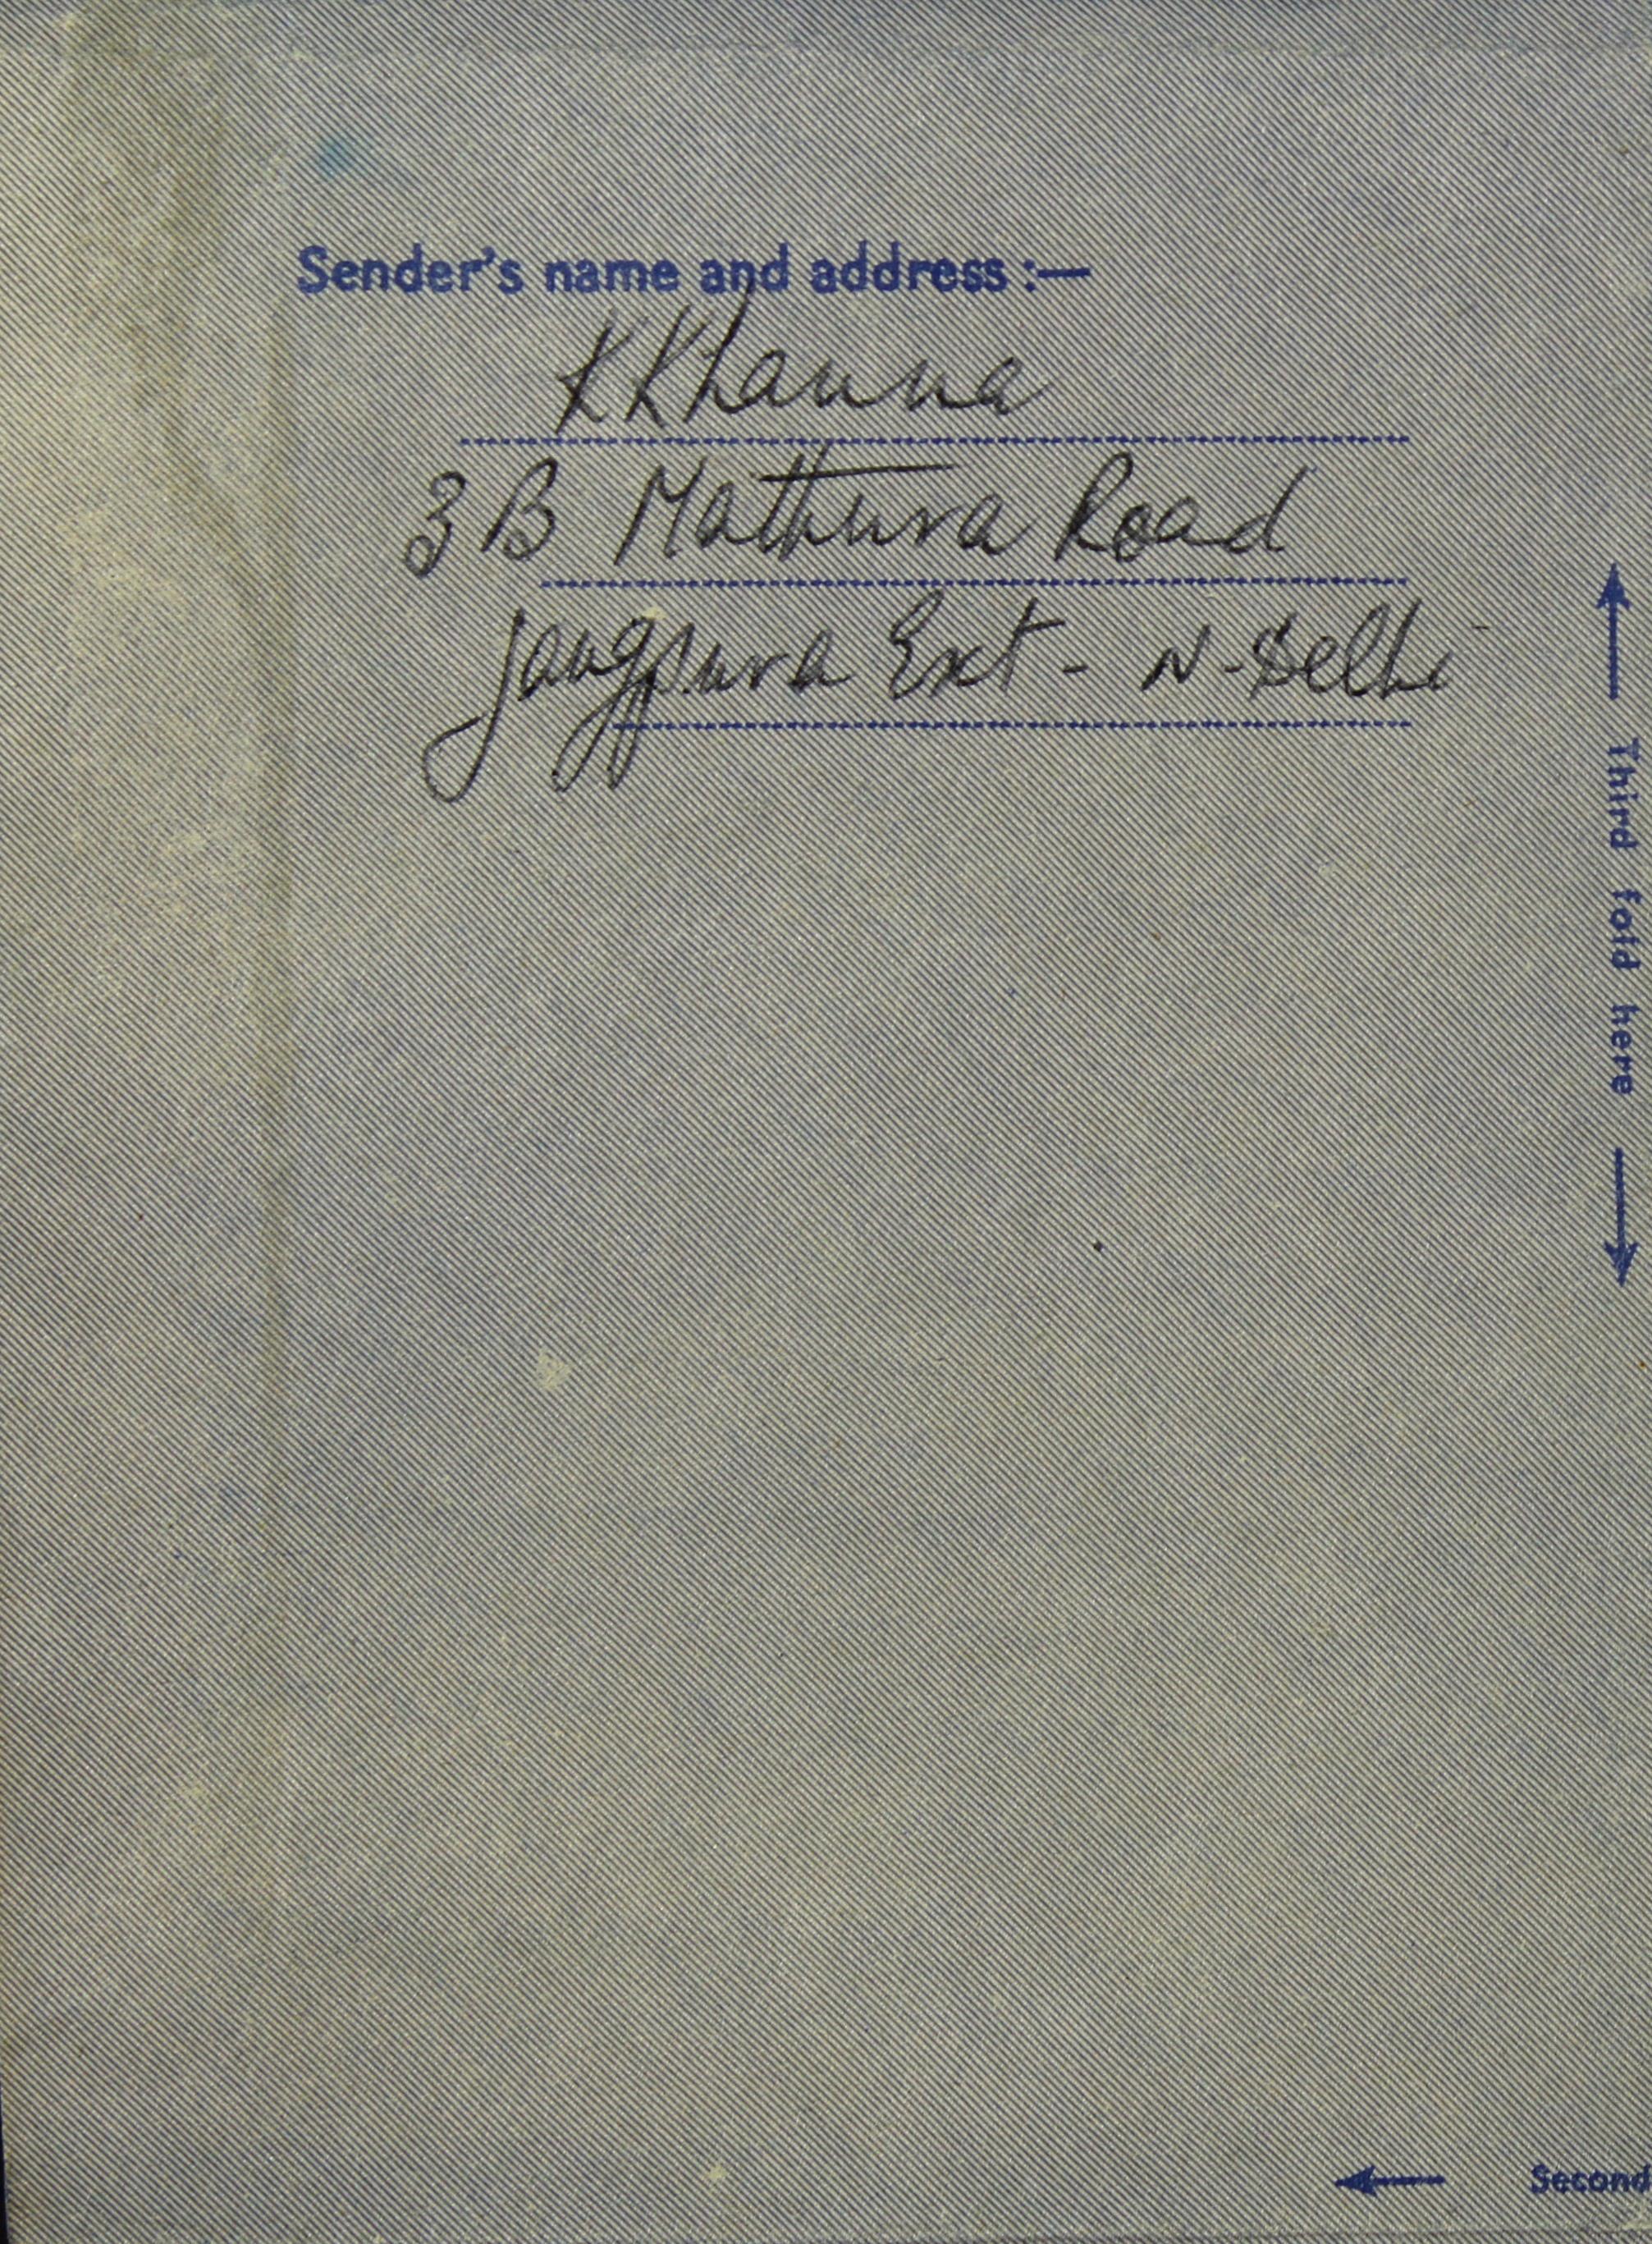 Sender's name and address :—
K Khanna
3 B Mathura Road
Jangpura Ext - N - Delhi
Third fold here
Second